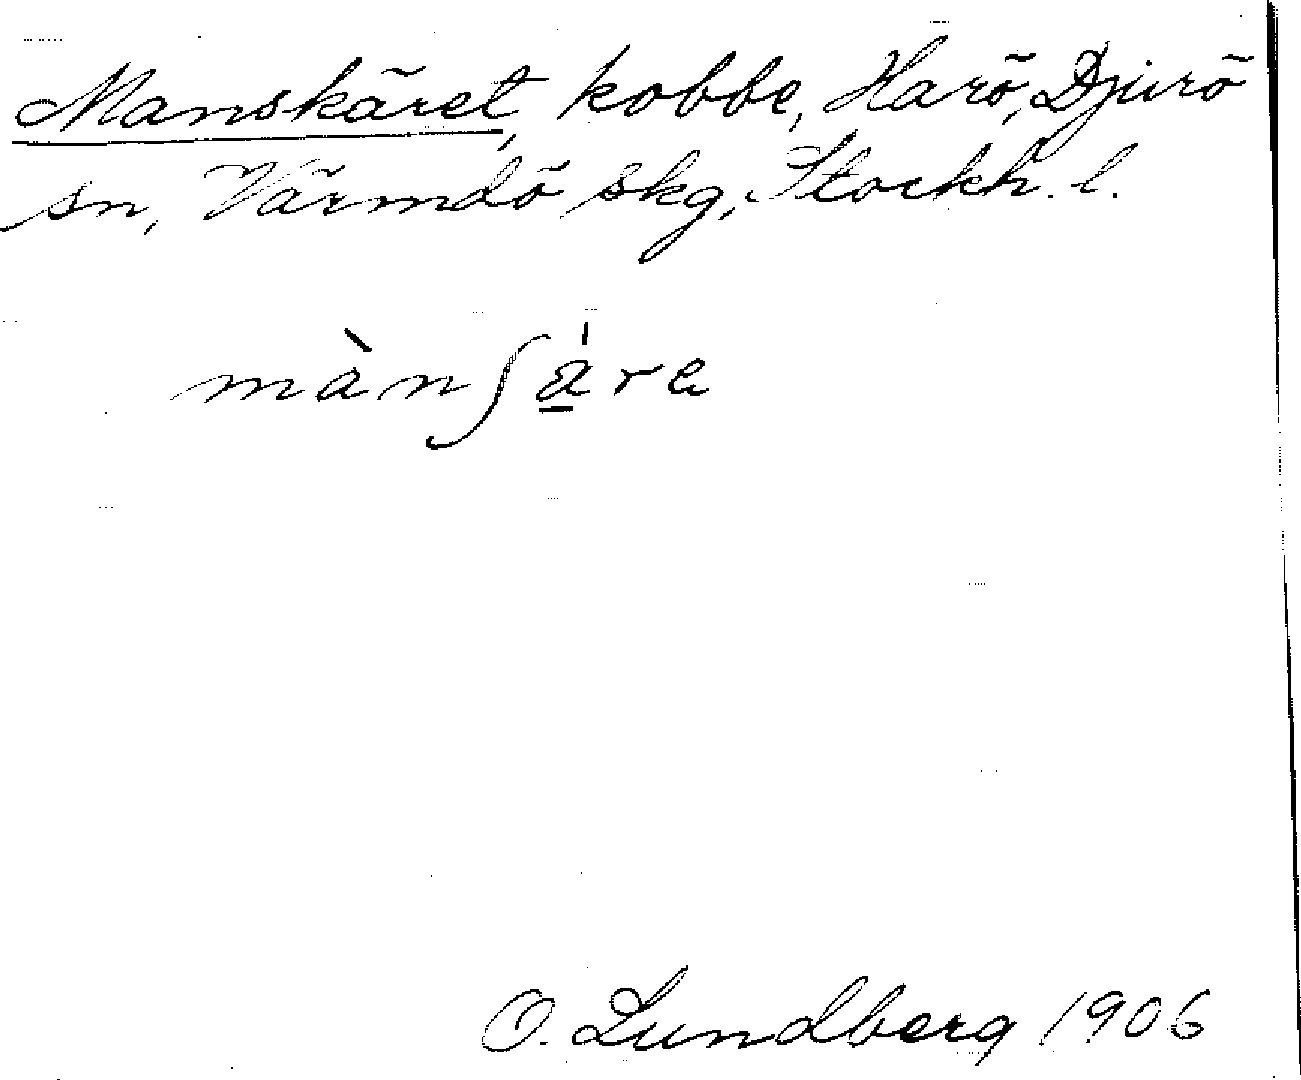 Manskäret, kobbe, Harö, Djurö
sn, Värmdö skg, Stockh. l.
mànʃa̲̍re
O. Lundberg 1906